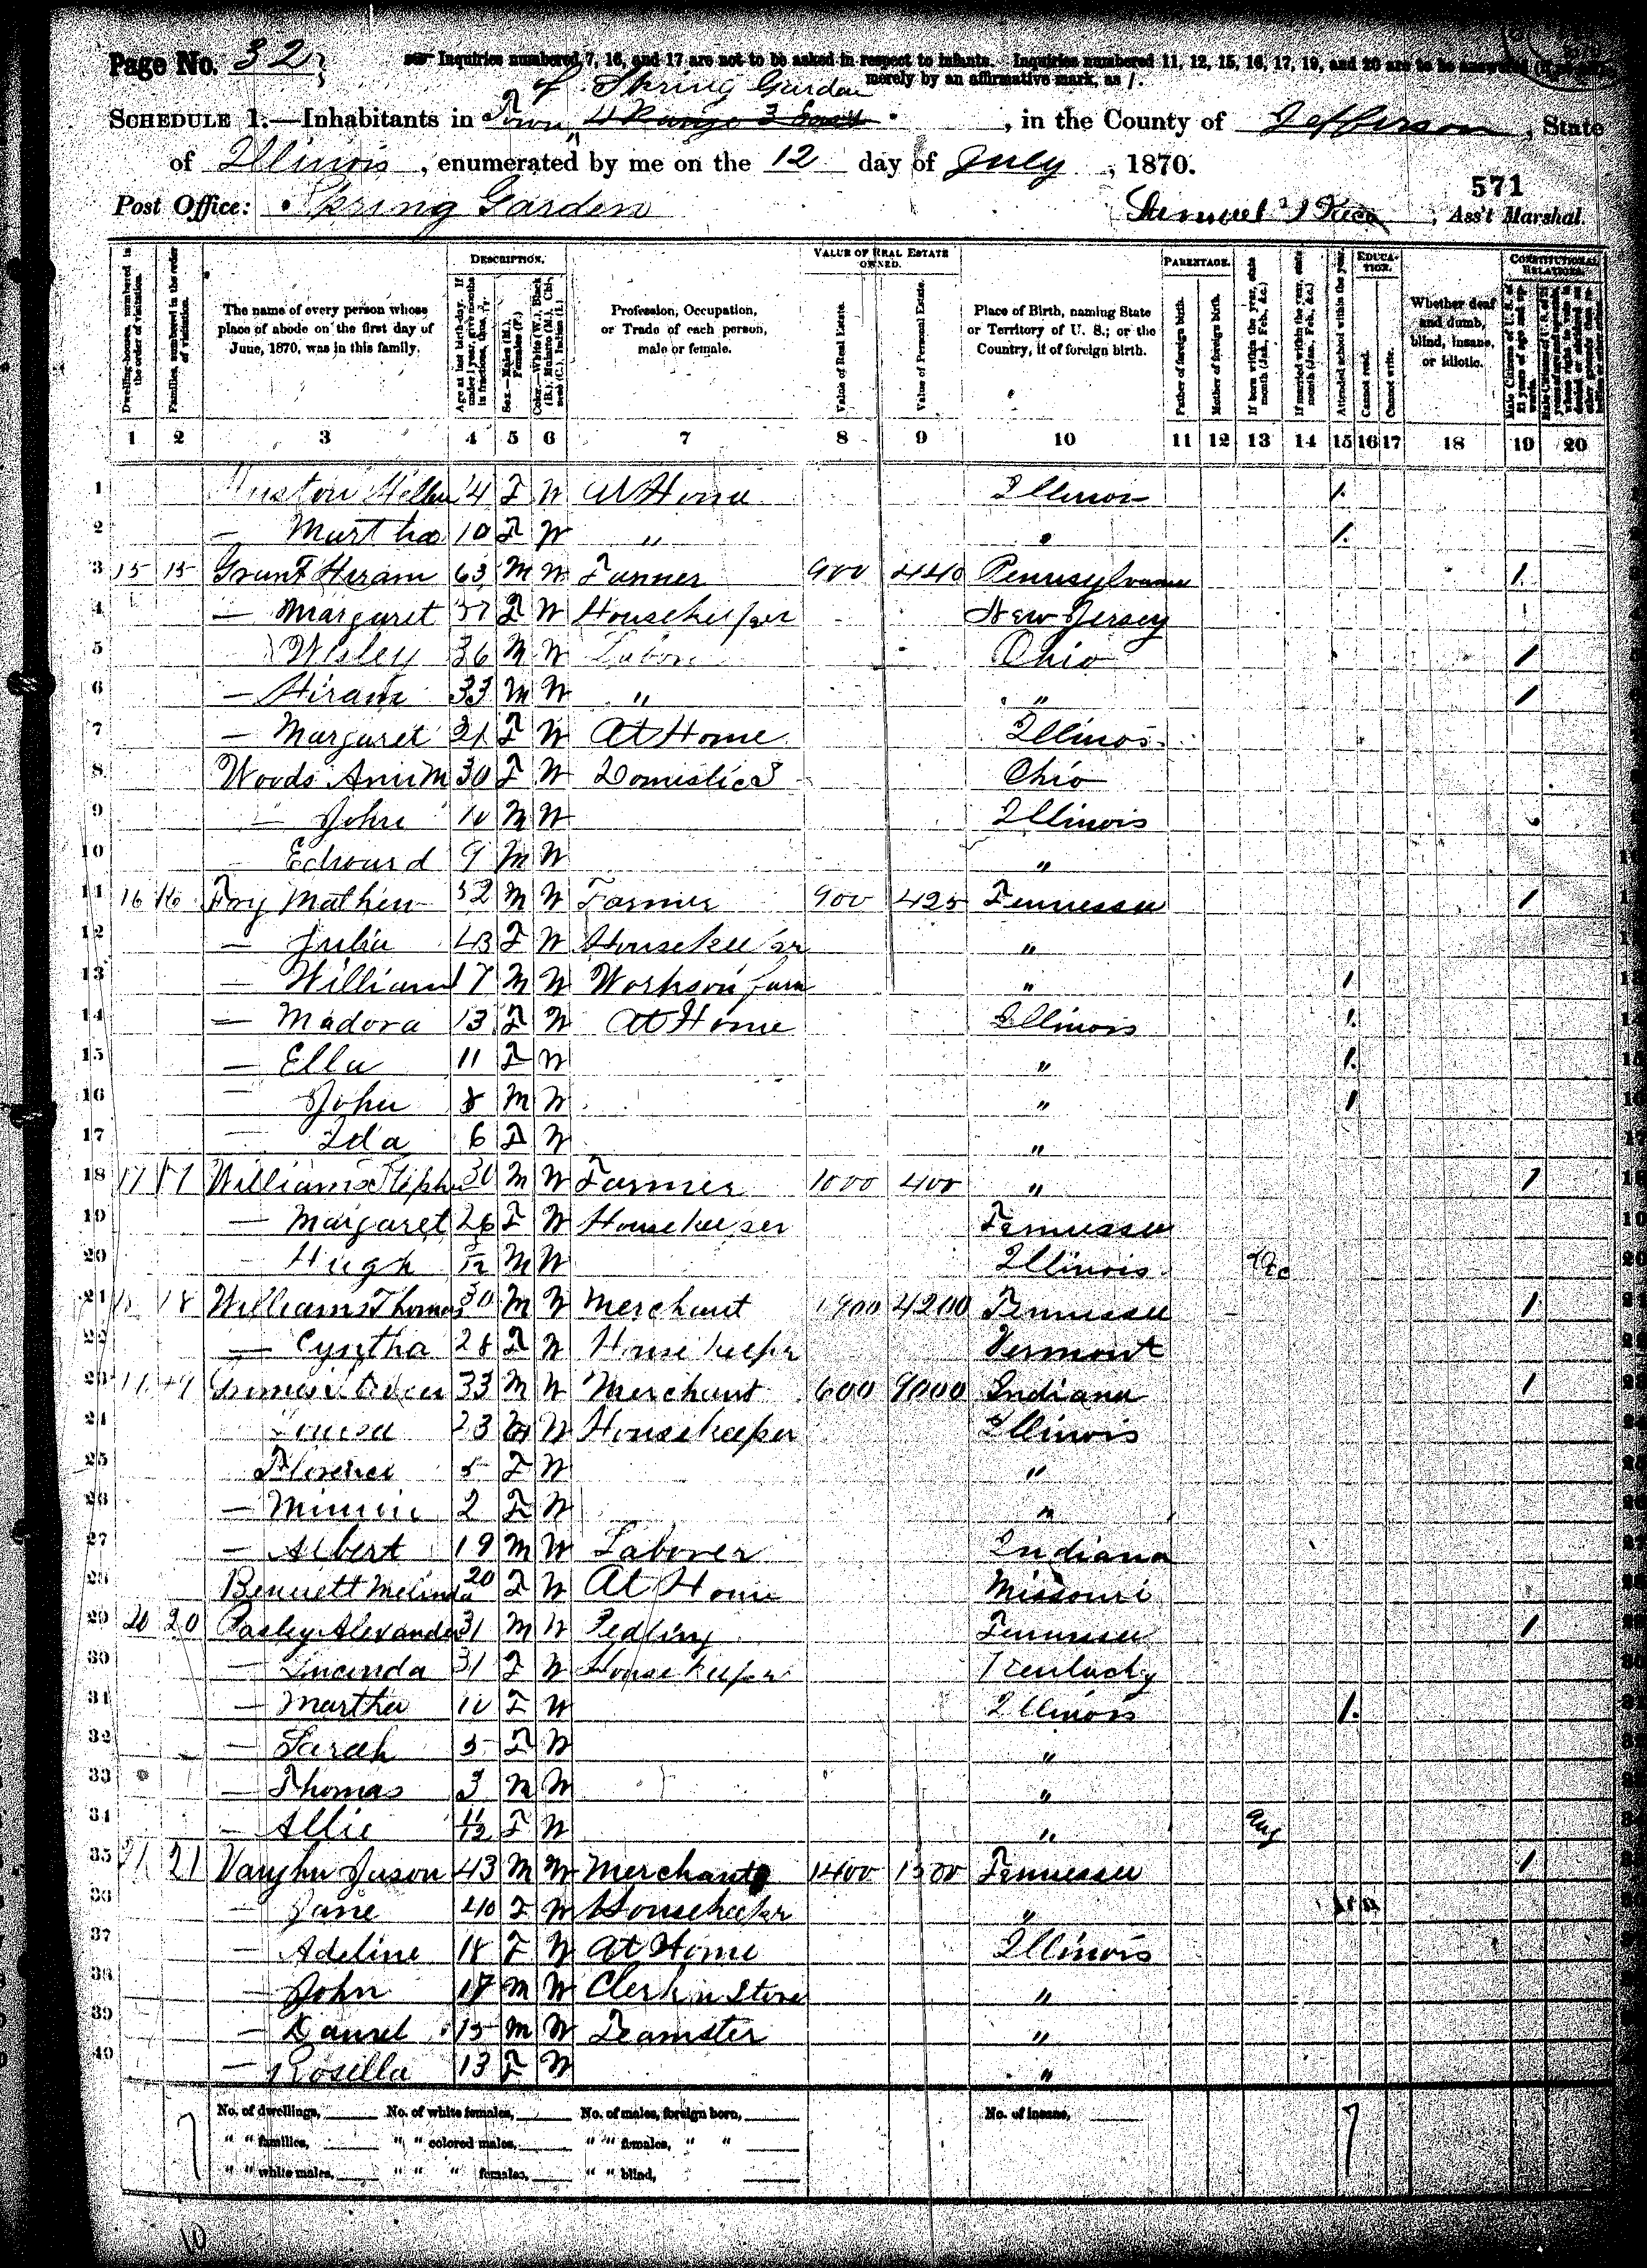 Page No. 32
Inquiries numbered 7, 16, and 17 are not to be asked in respect to infants. Inquiries numbered 11, 12, 15, 16, 17, 19, and 20 are to be answered
merely by an affirmative mark, as /.
of Spring Garden
SCHEDULE 1.—Inhabitants in Town 4 Range 3 East, in the County of Jefferson, State
of Illinois, enumerated by me on the 12 day of July, 1870.
571
Post Office: Spring Garden Ass't Marshal.
DESCRIPTION. VALUE OF REAL ESTATE OWNED. PARENTAGE. EDUCATION. CONSTITUTIONAL RELATIONS.
Dwelling-houses, numbered in the order of visitation.
Families, numbered in the order of visitation.
The name of every person whose place of abode on the first day of June, 1870, was in this family.
Age at last birth-day. If under 1 year, give months in fractions, thus,
Sex.—Males (M.), Females (F.)
Color.—White (W.), Black (B.), Mulatto (M.), Chinese (C.), Indian (I.)
Profession, Occupation, or Trade of each person, male or female.
Value of Real Estate.
Value of Personal Estate.
Place of Birth, naming State or Territory of U. S.; or the Country, if of foreign birth.
Father of foreign birth.
Mother of foreign birth.
If born within the year, state month (Jan., Feb., &c.)
If married within the year, state month (Jan., Feb., &c.)
Attended school within the year.
Cannot read.
Cannot write.
Whether deaf and dumb, blind, insane, or idiotic.
Male Citizens of U. S. of 21 years of age and upwards.
1 2 3 4 5 6 7 8 9 10 11 12 13 14 15 16 17 18 19 20
1 14 F W At Home Illinois /
2 — Martha 10 F W " " /
3 15 15 Grant Hiram 63 M W Farmer 900 440 Pennsylvania /
4 — Margaret 57 F W Housekeeper New Jersey
5 Wesley 36 M W Labor Ohio /
6 — Hiram 33 M W " " /
7 — Margaret 21 F W At Home Illinois
8 Woods Ann M 30 F W Domestic Ohio
9 — John 10 M W Illinois
10 — Edward 9 M W "
11 16 16 Fry Mathew 52 M W Farmer 900 425 Tennessee /
12 — Julia 43 F W Housekeeper "
13 — William 17 M W Works on farm " /
14 — Madora 13 F W At Home Illinois /
15 — Ella 11 F W " /
16 — John 8 M W " /
17 — Ida 6 F W "
18 17 17 Williams Steph 30 M W Farmer 1000 400 " /
19 — Margaret 26 F W Housekeeper Tennessee
20 — Hugh M W Illinois Dec
21 18 18 Williams Thomas 30 M W Merchant 1900 4200 Tennessee /
22 — Cyntha 28 F W Housekeeper Vermont
23 19 19 33 M W Merchant 600 9000 Indiana /
24 Louisa 23 W Housekeeper Illinois
25 Florence 5 F W "
26 — Minnie 2 F W "
27 — Albert 19 M W Laborer Indiana
28 Bennett Melinda 20 F W At Home Missouri
29 20 20 Pasley Alexander 31 M W Pedling Tennessee /
30 — Lucinda 31 F W Housekeeper Kentucky
31 — Martha 10 F W Illinois /
32 — Sarah 5 F W "
33 — Thomas 3 M W "
34 — Allie 11/12 F W " Aug
35 21 21 Vaughn Jason 43 M W Merchant 1400 1500 Tennessee /
36 — Jane 40 F W Housekeeper "
37 — Adeline 18 F W At Home Illinois
38 — John 17 M W Clerk in Store "
39 — Daniel 15 M W Teamster "
40 — Rosella 13 F W "
No. of dwellings, No. of white females, No. of males, foreign born, No. of insane,
" " families, " " colored males, " " females, " "
" " white males, " " " females, " " blind,
7 7
10